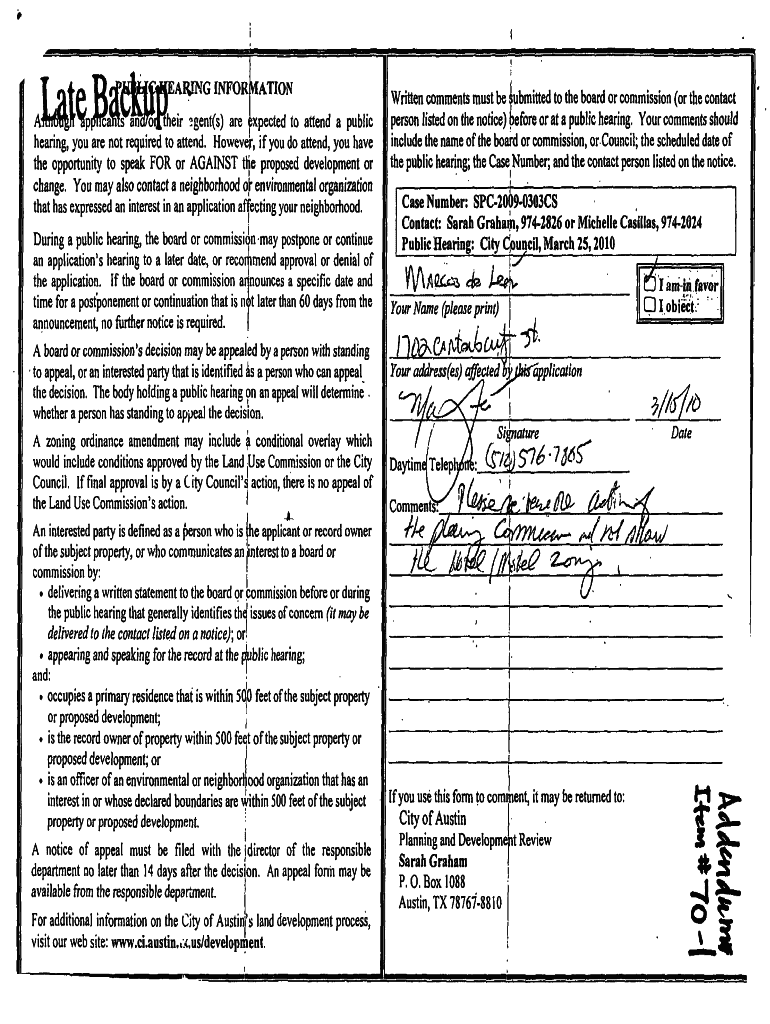 Late Backup
PUBLIC HEARING INFORMATION
Although applicants and/or their agent(s) are expected to attend a public
hearing, you are not required to attend. However, if you do attend, you have
the opportunity to speak FOR or AGAINST the proposed development or
change. You may also contact a neighborhood or environmental organization
that has expressed an interest in an application affecting your neighborhood.
During a public hearing, the board or commission may postpone or continue
an application's hearing to a later date, or recommend approval or denial of
the application. If the board or commission announces a specific date and
time for a postponement or continuation that is not later than 60 days from the
announcement, no further notice is required.
A board or commission's decision may be appealed by a person with standing
to appeal, or an interested party that is identified as a person who can appeal
the decision. The body holding a public hearing on an appeal will determine
whether a person has standing to appeal the decision.
A zoning ordinance amendment may include a conditional overlay which
would include conditions approved by the Land Use Commission or the City
Council. If final approval is by a City Council's action, there is no appeal of
the Land Use Commission's action.
An interested party is defined as a person who is the applicant or record owner
of the subject property, or who communicates an interest to a board or
commission by:
• delivering a written statement to the board or commission before or during
the public hearing that generally identifies the issues of concern (it may be
delivered to the contact listed on a notice); or
• appearing and speaking for the record at the public hearing;
and:
• occupies a primary residence that is within 500 feet of the subject property
or proposed development;
• is the record owner of property within 500 feet of the subject property or
proposed development; or
• is an officer of an environmental or neighborhood organization that has an
interest in or whose declared boundaries are within 500 feet of the subject
property or proposed development.
A notice of appeal must be filed with the director of the responsible
department no later than 14 days after the decision. An appeal form may be
available from the responsible department.
For additional information on the City of Austin's land development process,
visit our web site: www.ci.austin.tx.us/development.
Written comments must be submitted to the board or commission (or the contact
person listed on the notice) before or at a public hearing. Your comments should
include the name of the board or commission, or Council; the scheduled date of
the public hearing; the Case Number; and the contact person listed on the notice.
Case Number: SPC-2009-0303CS
Contact: Sarah Graham, 974-2826 or Michelle Casillas, 974-2024
Public Hearing: City Council, March 25, 2010
Marcos de Leon
I am in favor
I object
Your Name (please print)
1702 Canterbury St.
Your address(es) affected by this application
3/15/10
Signature Date
Daytime Telephone: (512) 576-7865
Comments: Please reverse action of
the planing Commission and not allow
the Hotel/Motel zoning.
If you use this form to comment, it may be returned to:
City of Austin
Planning and Development Review
Sarah Graham
P. O. Box 1088
Austin, TX 78767-8810
Addendum
Item # 70-1